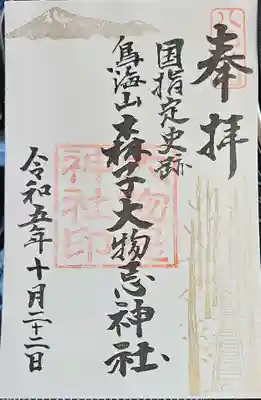 奉拝
国指定史跡
鳥海山森子大物忌神社
大物忌
神社印
令和五年十月二十二日